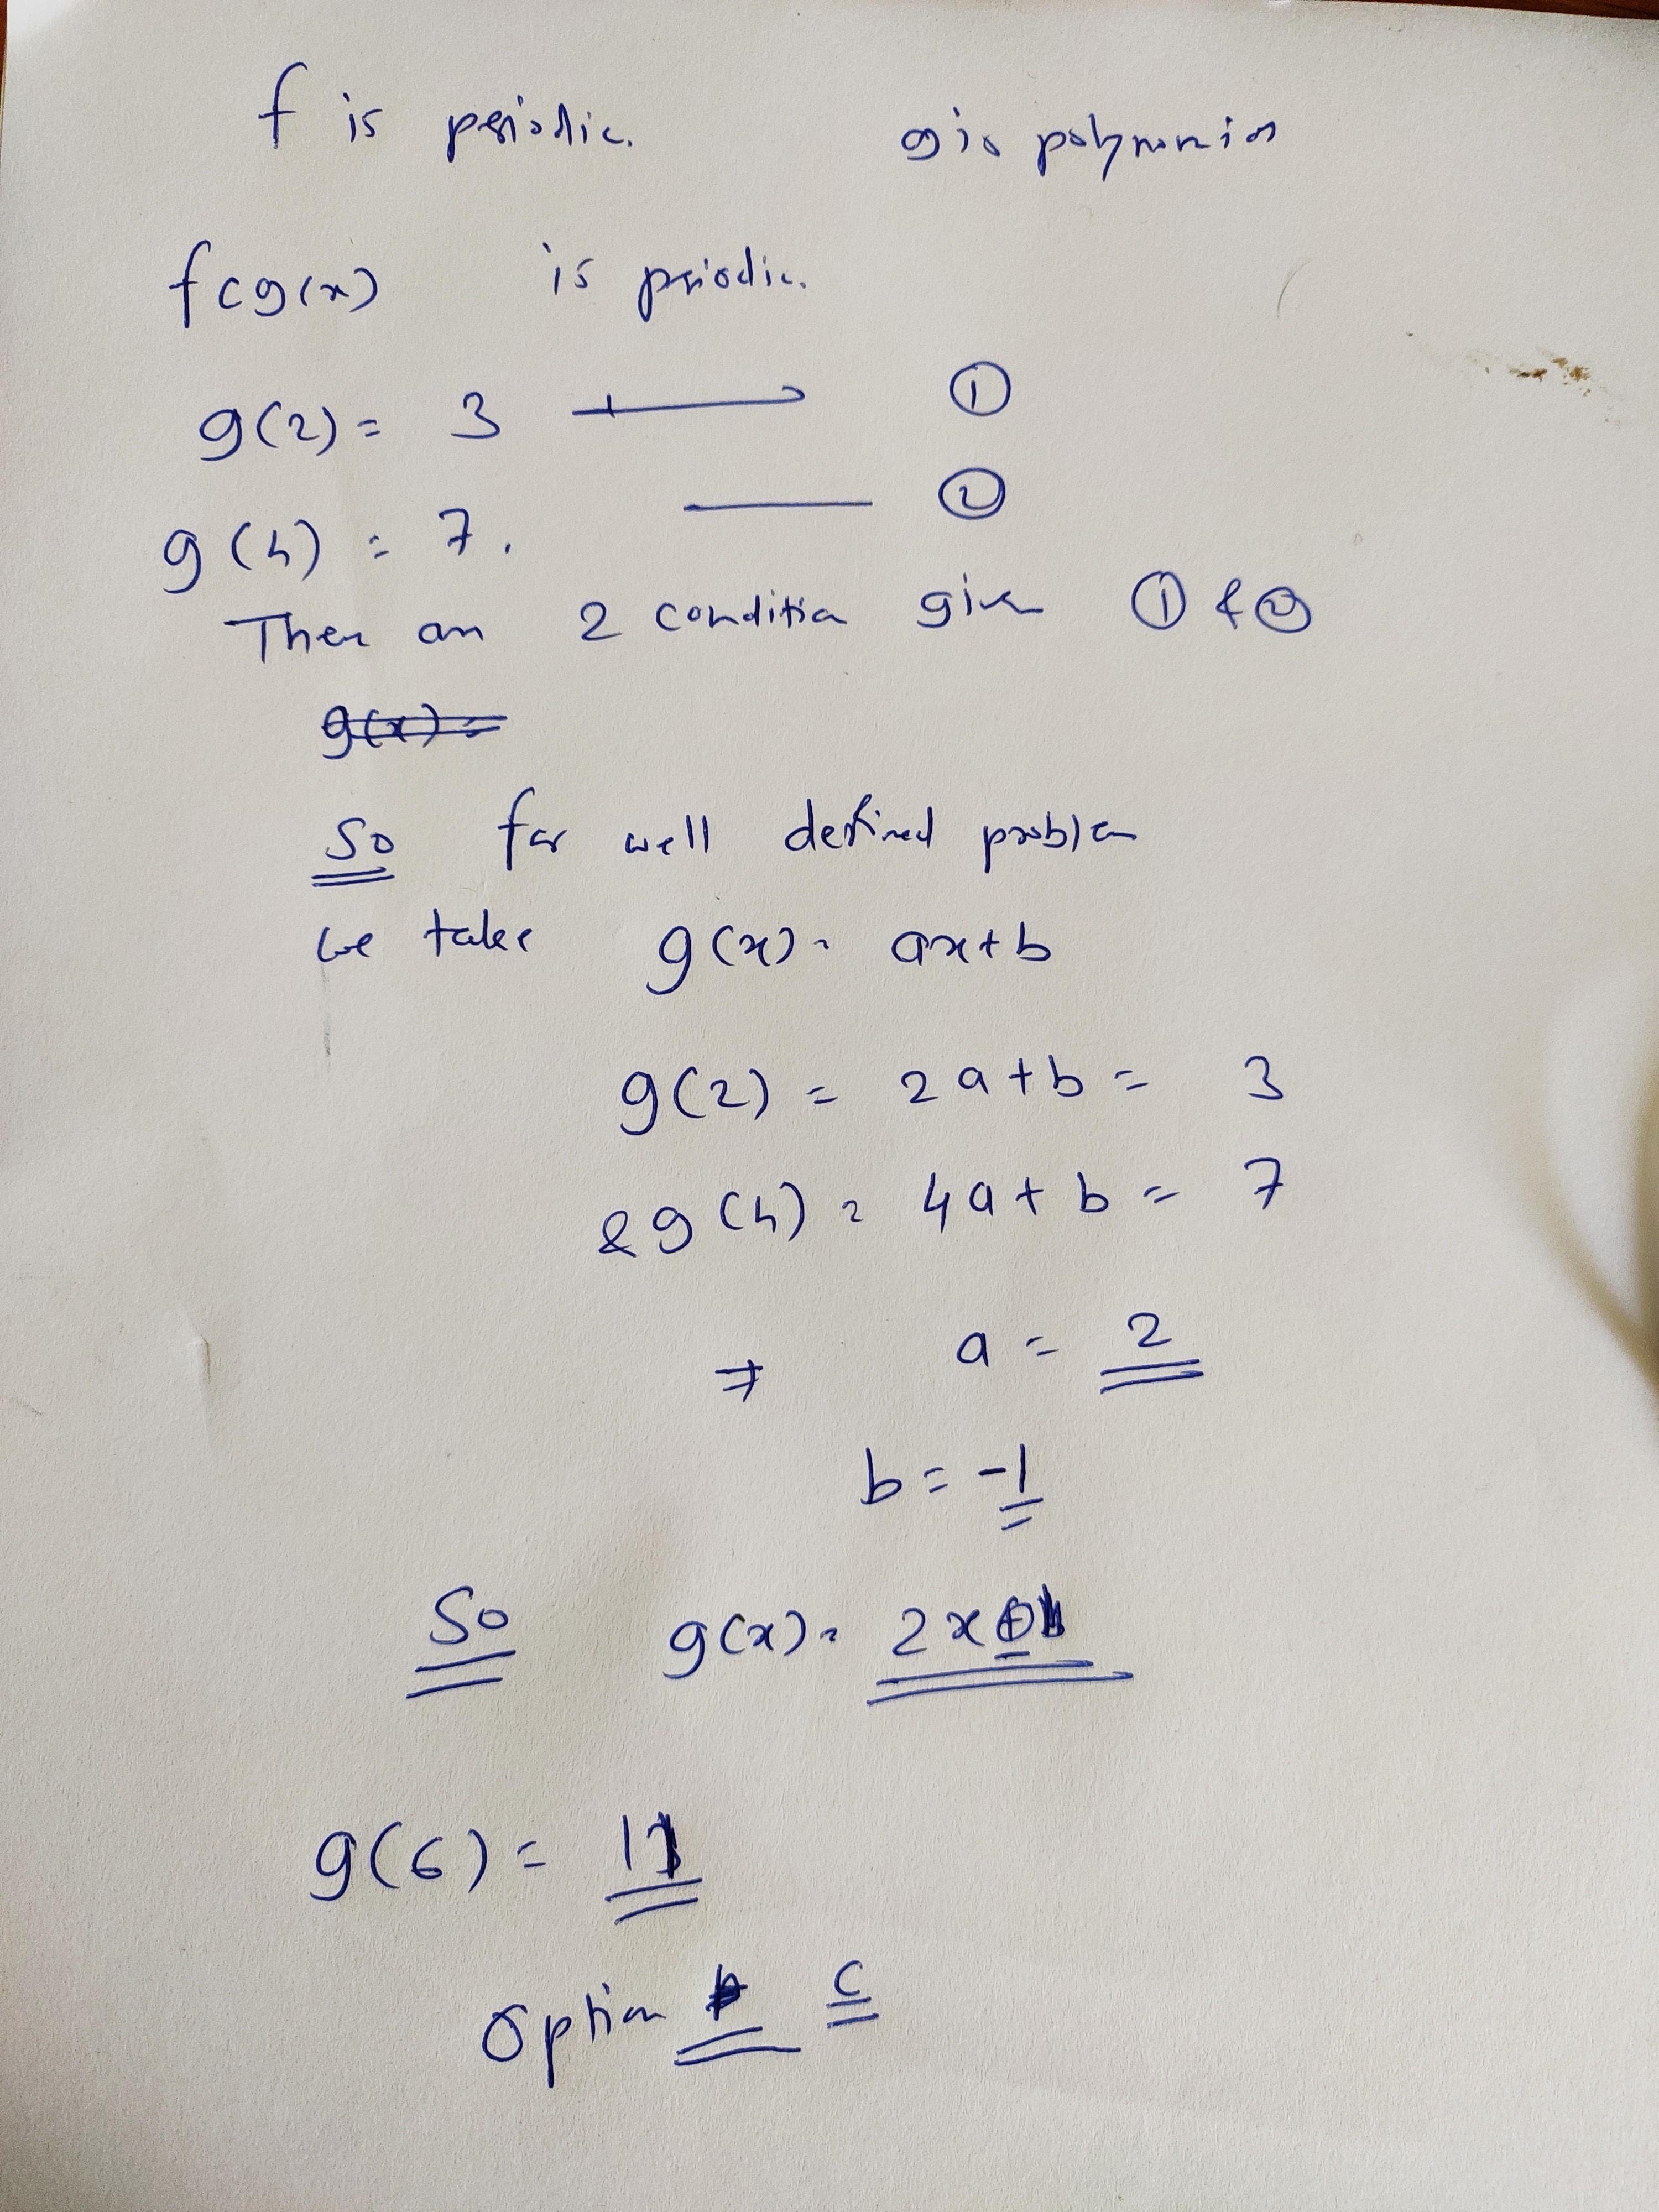 f is periodic. g is polynomial
f(g(x) is periodic.
g(2) = 3 → ①
g(4) = 7. — ②
Then an 2 condition given ① & ②
g(x) =
So for well defined problem
we take g(x) = ax+b
g(2) = 2a+b = 3
& g(4) = 4a+b = 7
⇒ a = 2
b = -1
So g(x) = 2x
g(6) = 11
Option c